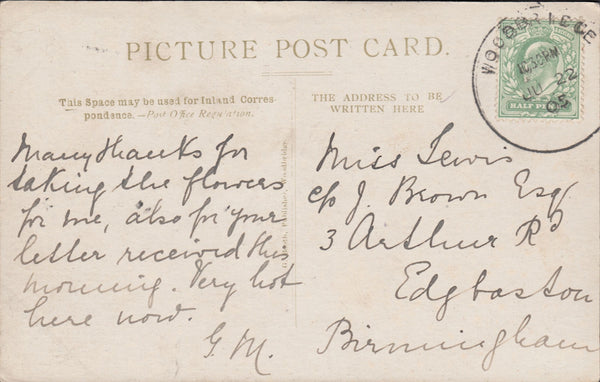 PICTURE POST CARD.
This Space may be used for Inland Corres-
pondence.—Post Office Regulation.
Many thanks for
taking the flowers
for me, also for your
letter received this
morning. Very hot
here now.
G. M.
THE ADDRESS TO BE
WRITTEN HERE
Miss Lewis
c/o J. Brown Esq
3 Arthur Rd
Edgbaston
Birmingham
WOODBRIDGE
10.30AM
JU 22
05
HALF PENNY
Publisher, Woodbridge.